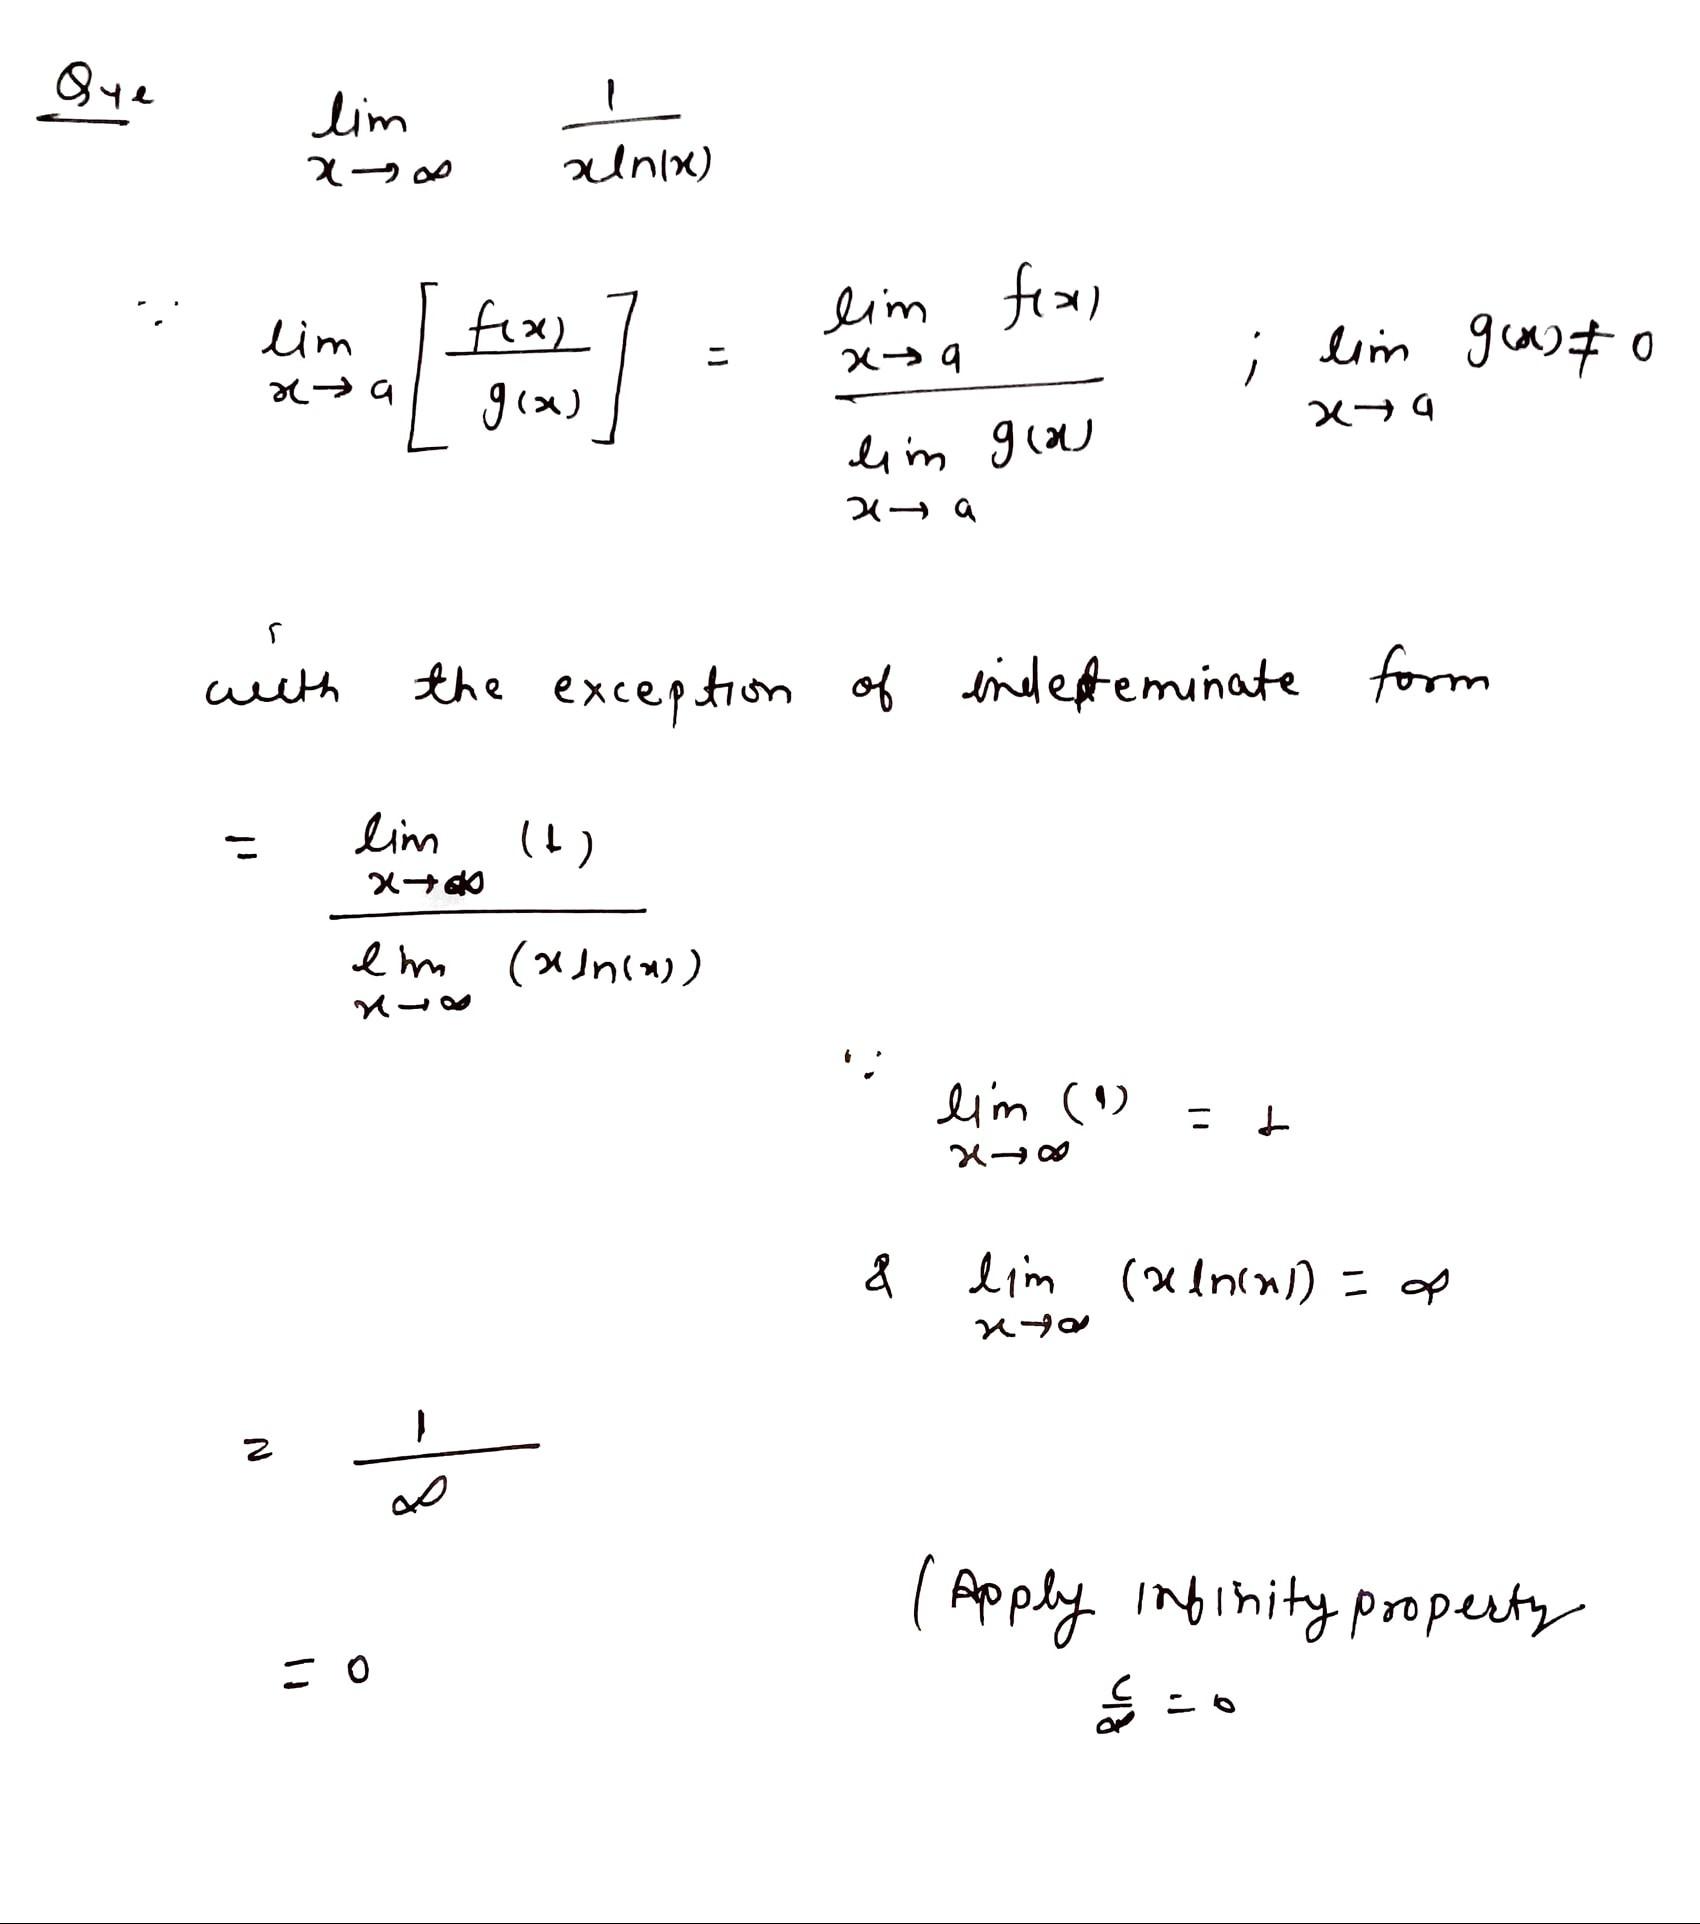 Que lim x→∞ 1/(x ln(x))
∵ lim x→a [f(x)/g(x)] = lim x→a f(x) / lim x→a g(x) ; lim x→a g(x) ≠ 0
with the exception of indeteminate form
= lim x→∞ (1) / lim x→∞ (x ln(x))
∵ lim x→∞ (1) = 1
& lim x→∞ (x ln(x)) = ∞
= 1/∞
(Apply infinity property
= 0
c/∞ = 0